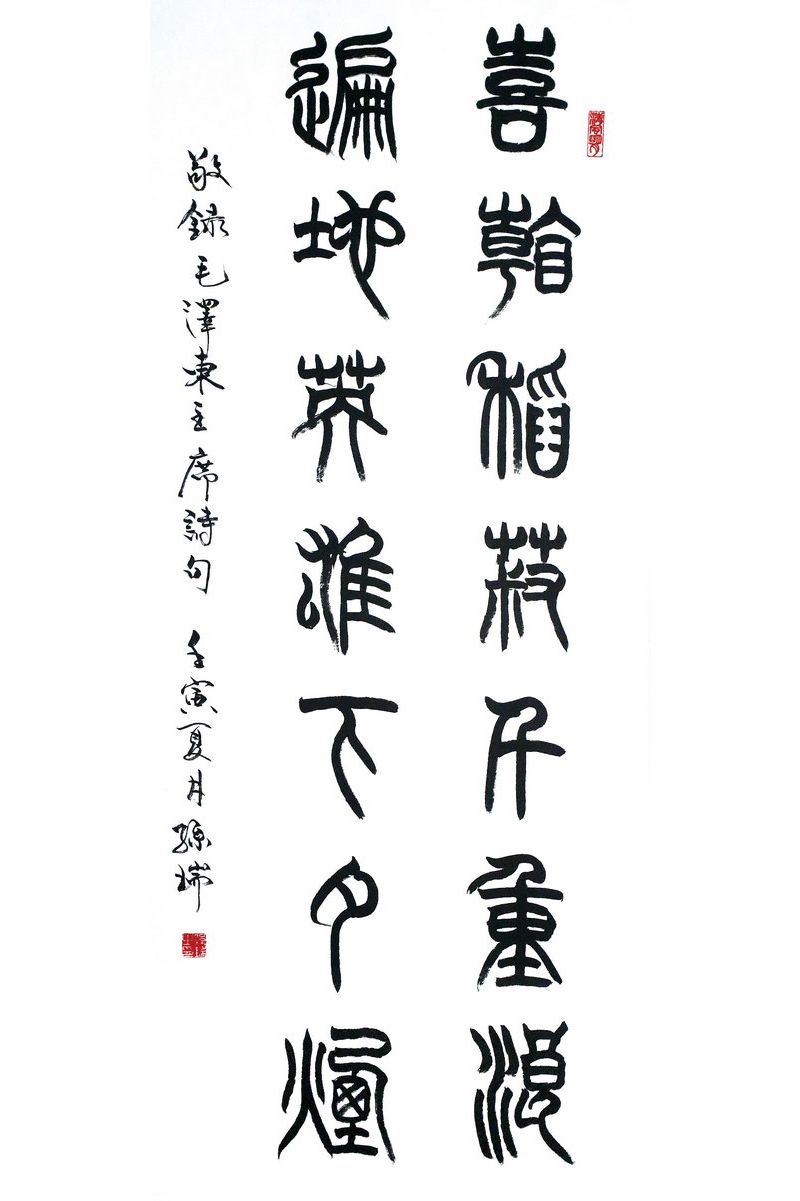 喜看稻菽千重浪
遍地英雄下夕煙
敬錄毛澤東主席詩句 壬寅夏月孫瑞